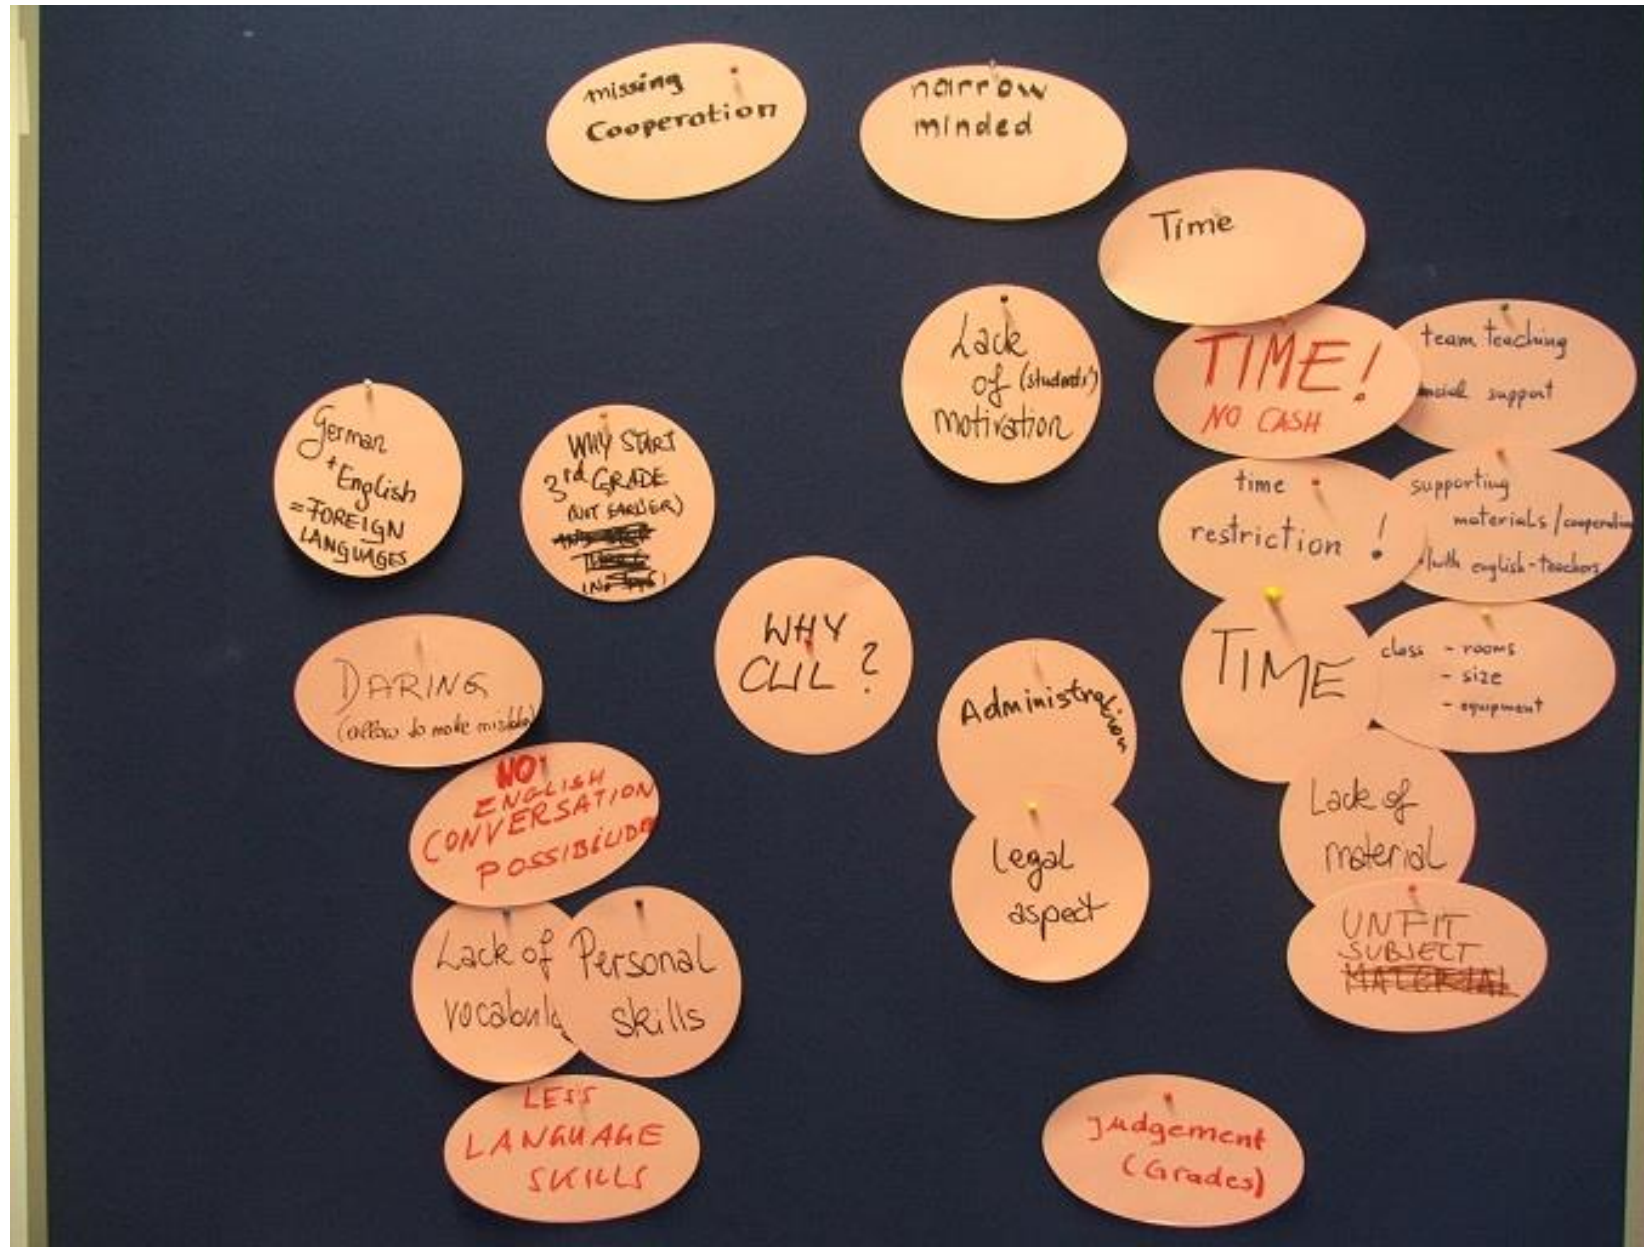 missing
Cooperation
narrow
minded
Time
Lack
of (students')
motivation
TIME!
NO CASH
team teaching
support
German
+ English
= FOREIGN
LANGUAGES
WHY START
3rd GRADE
(NOT EARLIER)
time
restriction !
supporting
materials/cooperation
with english-teachers
WHY
CLIL ?
DARING
(allow to make mistakes)
Administration
TIME
class - rooms
- size
- equipment
NO!
ENGLISH
CONVERSATION
Lack of
material
legal
aspect
UNFIT
SUBJECT
Lack of
Personal
skills
LESS
LANGUAGE
SKILLS
Judgement
(Grades)